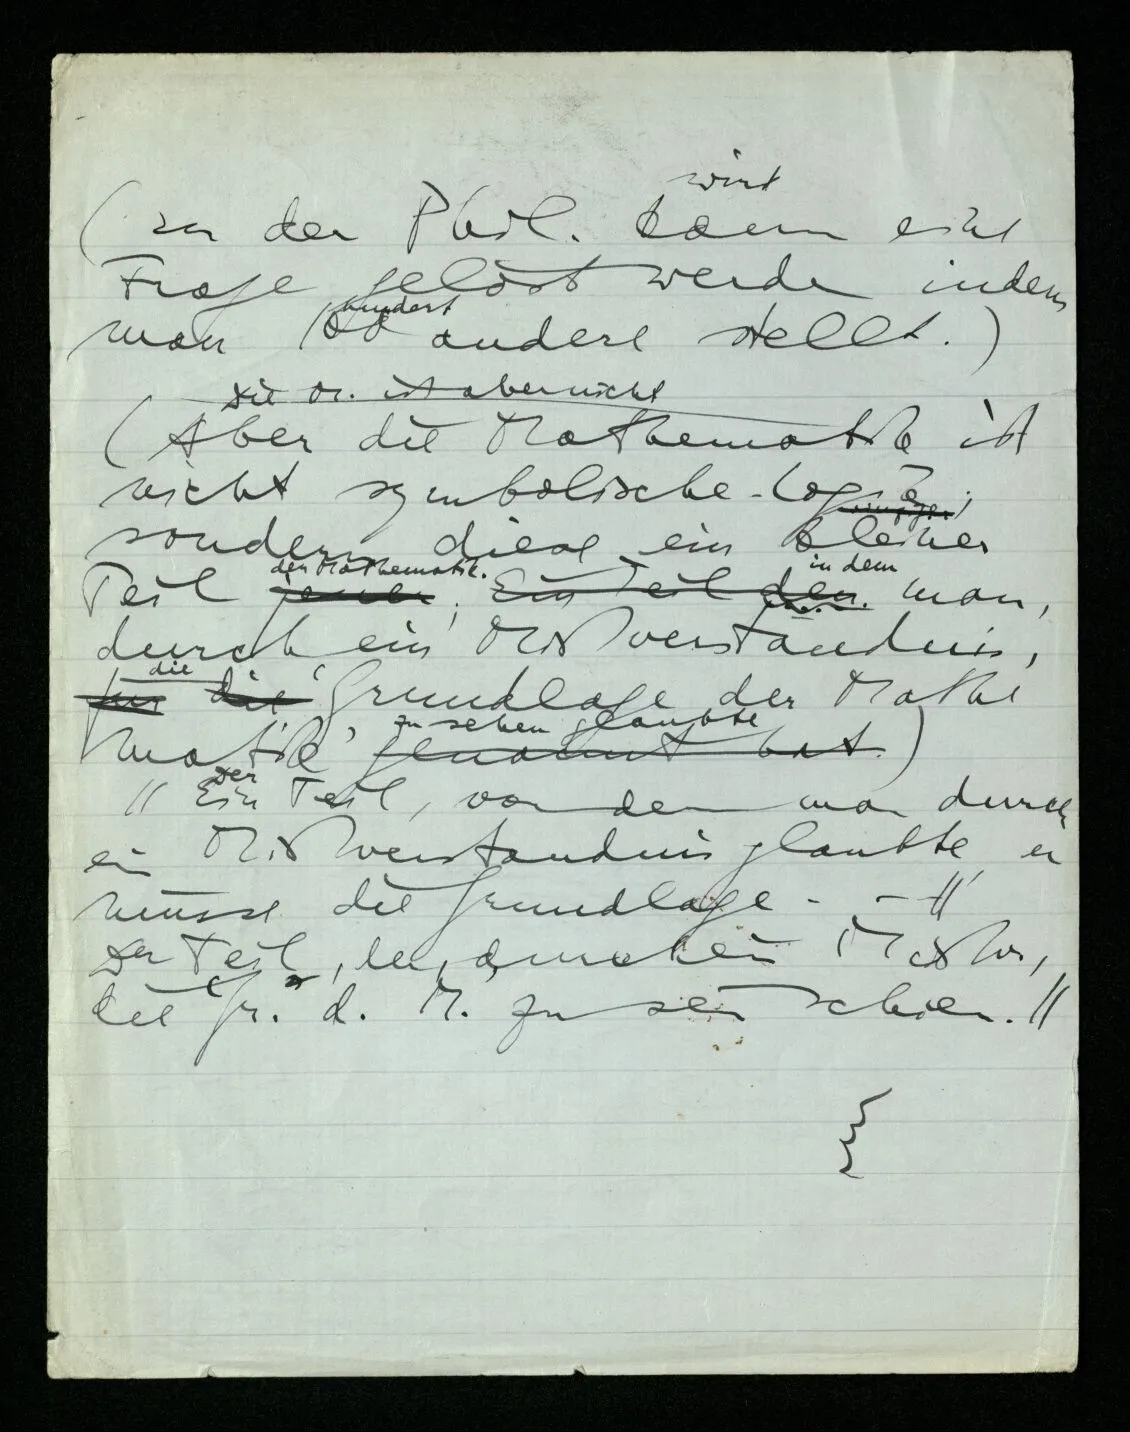 wird
(In der Phil. kann eine
Frage gelöst werde indem
hundert
man 100 andere stellt.)
Die M. ist aber nicht
(Aber die Mathematik ist
nicht symbolische Logik,
sondern diese ein kleiner
der Mathematik. in dem
Teil jener, Ein Teil den man,
durch ein Mißverständnis,
die
für die Grundlage der Mathe
zu sehen glaubte
matik genannt hat.)
Der
// Ein Teil, von dem man durch
ein Mißverständnis glaubte er
müsse die Grundlage - - //
Der Teil, der, durch ein Mißv,
die Gr. d. M. zu sein schien. //